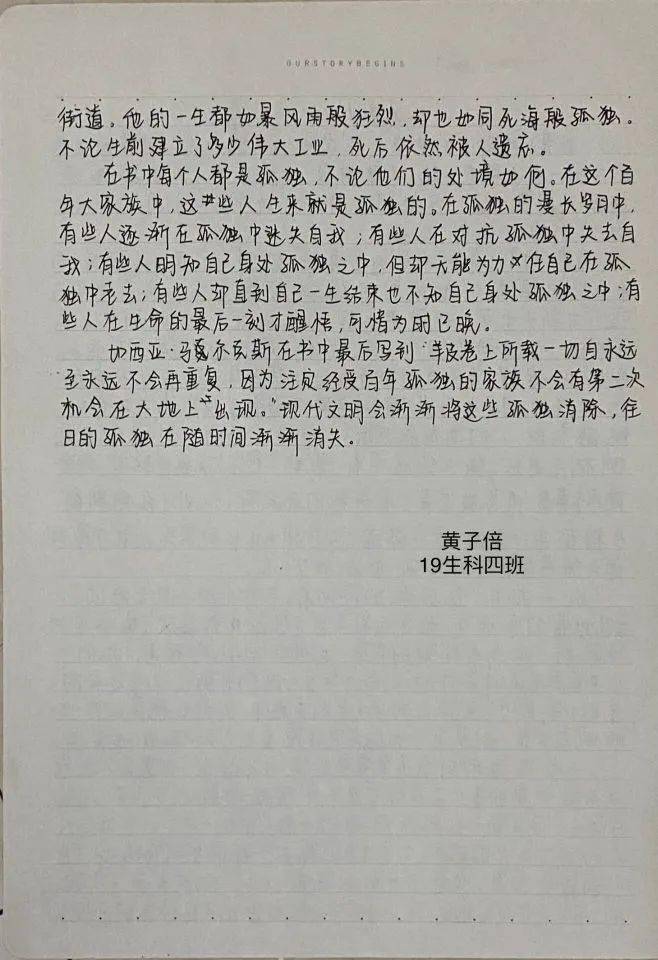 OURSTORYBEGINS
街道。他的一生都如暴风雨般狂烈,却也如同死海般孤独。
不论生前建立了多少伟大工业,死后依然被人遗忘。
在书中每个人都是孤独,不论他们的处境如何。在这个百
年大家族中,这些人生来就是孤独的。在孤独的漫长岁月中,
有些人逐渐在孤独中迷失自我;有些人在对抗孤独中失去自
我;有些人明知自己身处孤独之中,但却无能为力任自己在孤
独中老去;有些人却直到自己一生结束也不知自己身处孤独之中;有
些人在生命的最后一刻才醒悟,可惜为时已晚。
加西亚·马尔克斯在书中最后写到"羊皮卷上所载一切自永远
至永远不会再重复,因为注定经受百年孤独的家族不会有第二次
机会在大地上出现。"现代文明会渐渐将这些孤独消除,往
日的孤独在随时间渐渐消失。
黄子倍
19生科四班